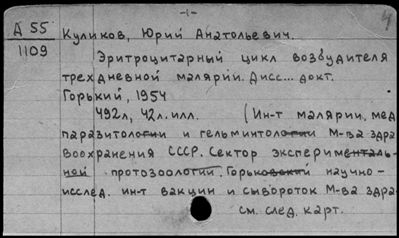 -1-
4
Д 55 Куликов, Юрий Анатольевич.
1109
Эритроцитарный цикл возбудителя
трехдневной малярии. Дисс... докт.
Горький, 1954
492л, 42л. илл. (Ин-т малярии, мед
паразитологии и гельминтологии М-ва здра
воохранения СССР. Сектор эксперименталь-
ной протозоологии. Горьковский научно-
исслед. ин-т вакцин и сывороток М-ва здра
см. след. карт.